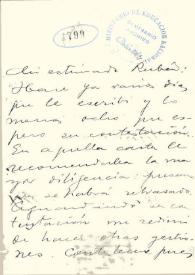 1899
MINISTERIO DE EDUCACIÓN NACIONAL
ARCHIVO
Mi estimado Rubén:
Hace ya varios días
que le escribí y lo
menos ocho que es-
pero su contestación.
En aquella carta le
recomendaba la ma-
yor diligencia:
se habrá retrasado.
Aguardando su con-
testación me
de hacer otras gestio-
nes. Contésteme pues